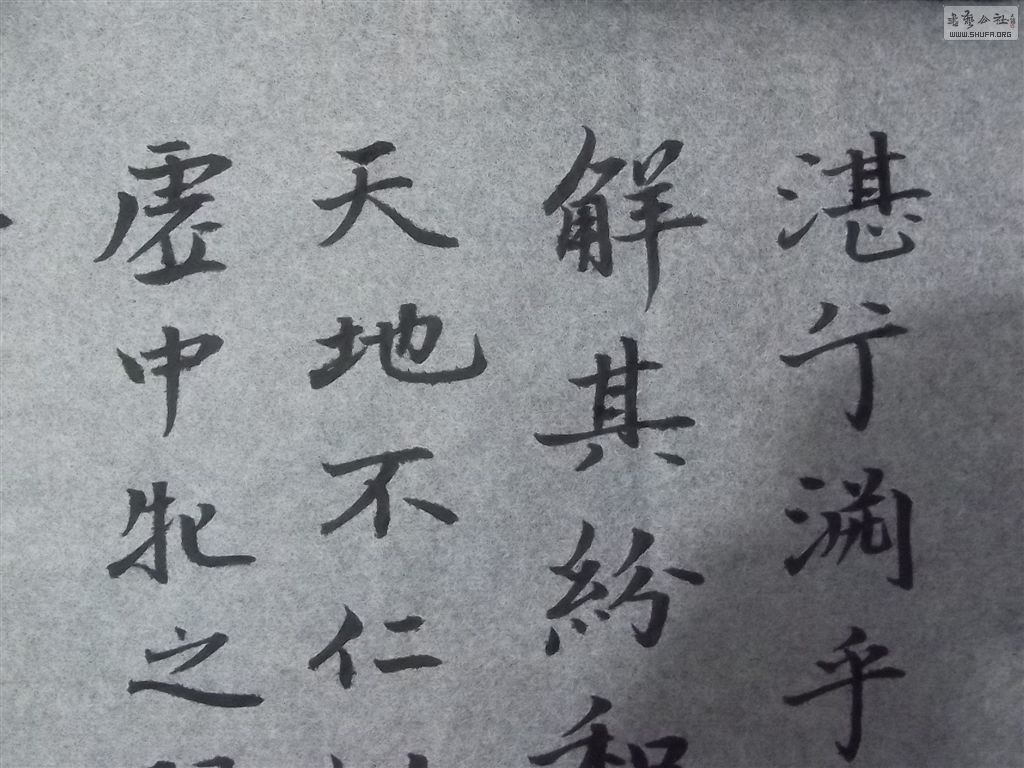 湛兮渊乎
解其紛和
天地不仁
虛中牝之
書藝公社
WWW.SHUFA.ORG